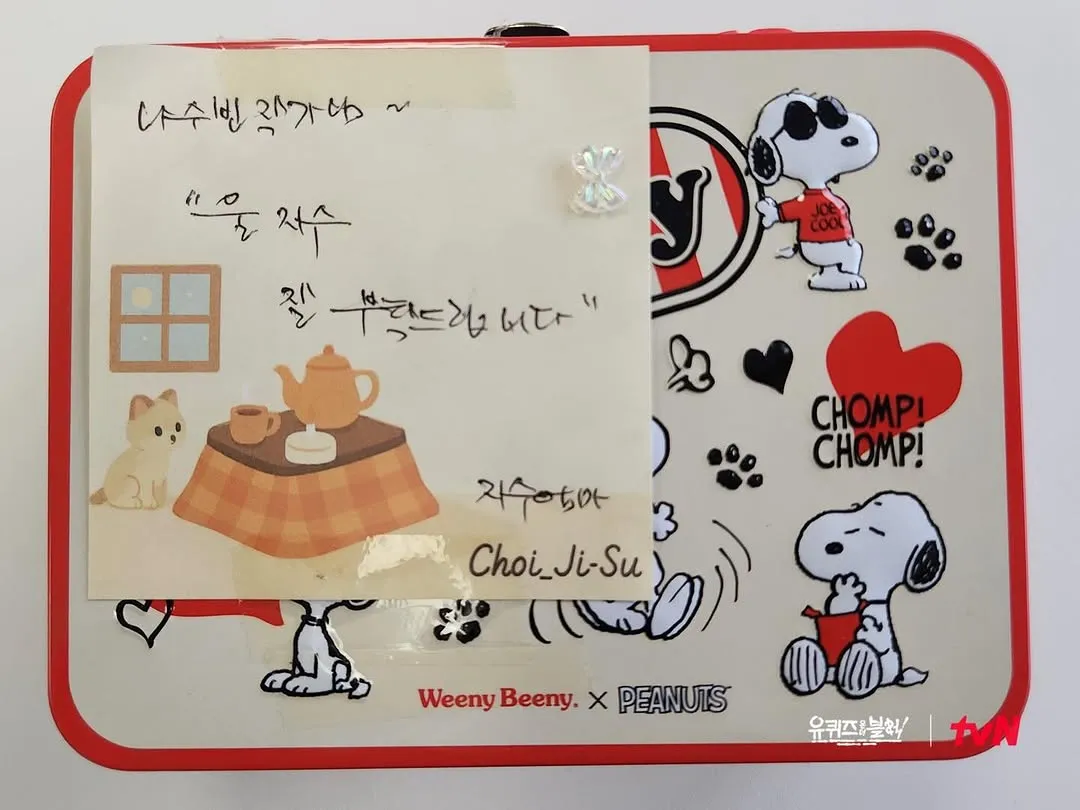 나수빈 작가님 ~
"울 지수
잘 부탁드립니다"
지수엄마
Choi_Ji-Su
JOE
COOL
CHOMP!
CHOMP!
Weeny Beeny. × PEANUTS
유퀴즈온더블럭! | tvN